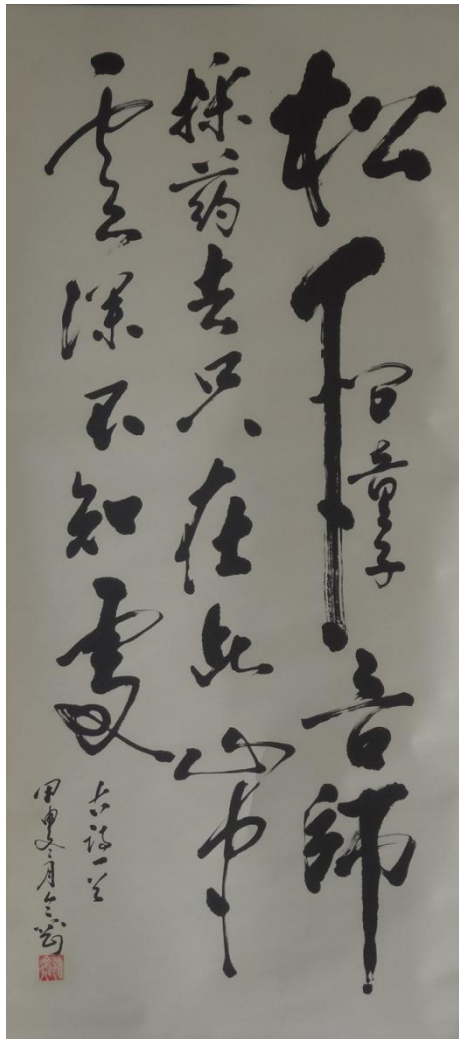 松下问童子言師
採药去只在此山中
雲深不知處
古诗一首
甲申夏月